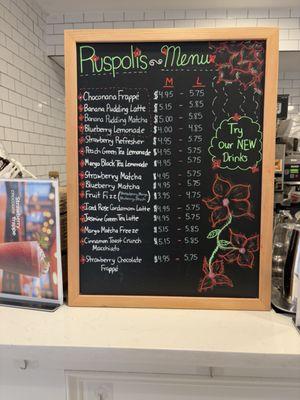 Ruspolis ~ Menu
M L
Choconana Frappé $4.95 - 5.75
Banana Pudding Latte $5.15 - 5.85
Banana Pudding Matcha $5.00 - 5.85
Blueberry Lemonade $4.00 - 4.85
Strawberry Refresher $4.95 - 5.75
Peach Green Tea Lemonade $4.95 - 5.75
Mango Black Tea Lemonade $4.95 - 5.75
Strawberry Matcha $4.95 - 5.75
Blueberry Matcha $4.95 - 5.75
Fruit Fizz $3.95 - 4.75
Iced Rose Cardamom Latte $4.95 - 5.75
Jasmine Green Tea Latte $4.95 - 5.75
Mango Matcha Freeze $5.15 - 5.85
Cinnamon Toast Crunch Macchiato $5.15 - 5.85
Strawberry Chocolate Frappé $4.95 - 5.75
Try
Our NEW
Drinks
Strawberry